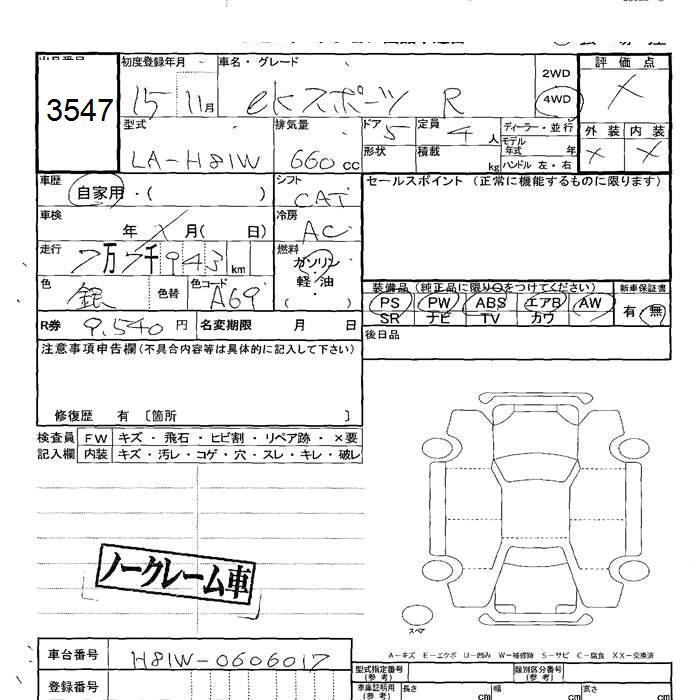 3547
初度登録年月 車名・グレード
15 11月 ekスポーツ R
2WD
4WD
評価点
×
型式 排気量 ドア 5 定員 4人
LA-H81W 660cc
形状 積載 kg
ディーラー・並行
モデル年式 年
ハンドル 左・右
外装 内装
× ×
車歴 自家用・( )
シフト CAT
セールスポイント (正常に機能するものに限ります)
車検 年 月( 日)
冷房 AC
走行 7万7千943km
燃料 ガソリン
軽・油
・( )
色 銀 色替 色コード A69
装備品 (純正品に限り○をつけてください) 新車保証書
PS PW ABS エアB AW 有・無
SR ナビ TV カワ
R券 9,540円 名変期限 月 日
後日品
注意事項申告欄(不具合内容等は具体的に記入して下さい)
修復歴 有 〔箇所 〕
検査員 FW キズ・飛石・ヒビ割・リペア跡・×要
記入欄 内装 キズ・汚レ・コゲ・穴・スレ・キレ・破レ
ノークレーム車
スペア
A-キズ E-エクボ U-凹み W-補修跡 S-サビ C-腐食 XX-交換済
車台番号 H81W-0606017
型式指定番号(参考) 類別区分番号(参考)
登録番号
車庫証明用(参考) 長さ cm 幅 cm 高さ cm